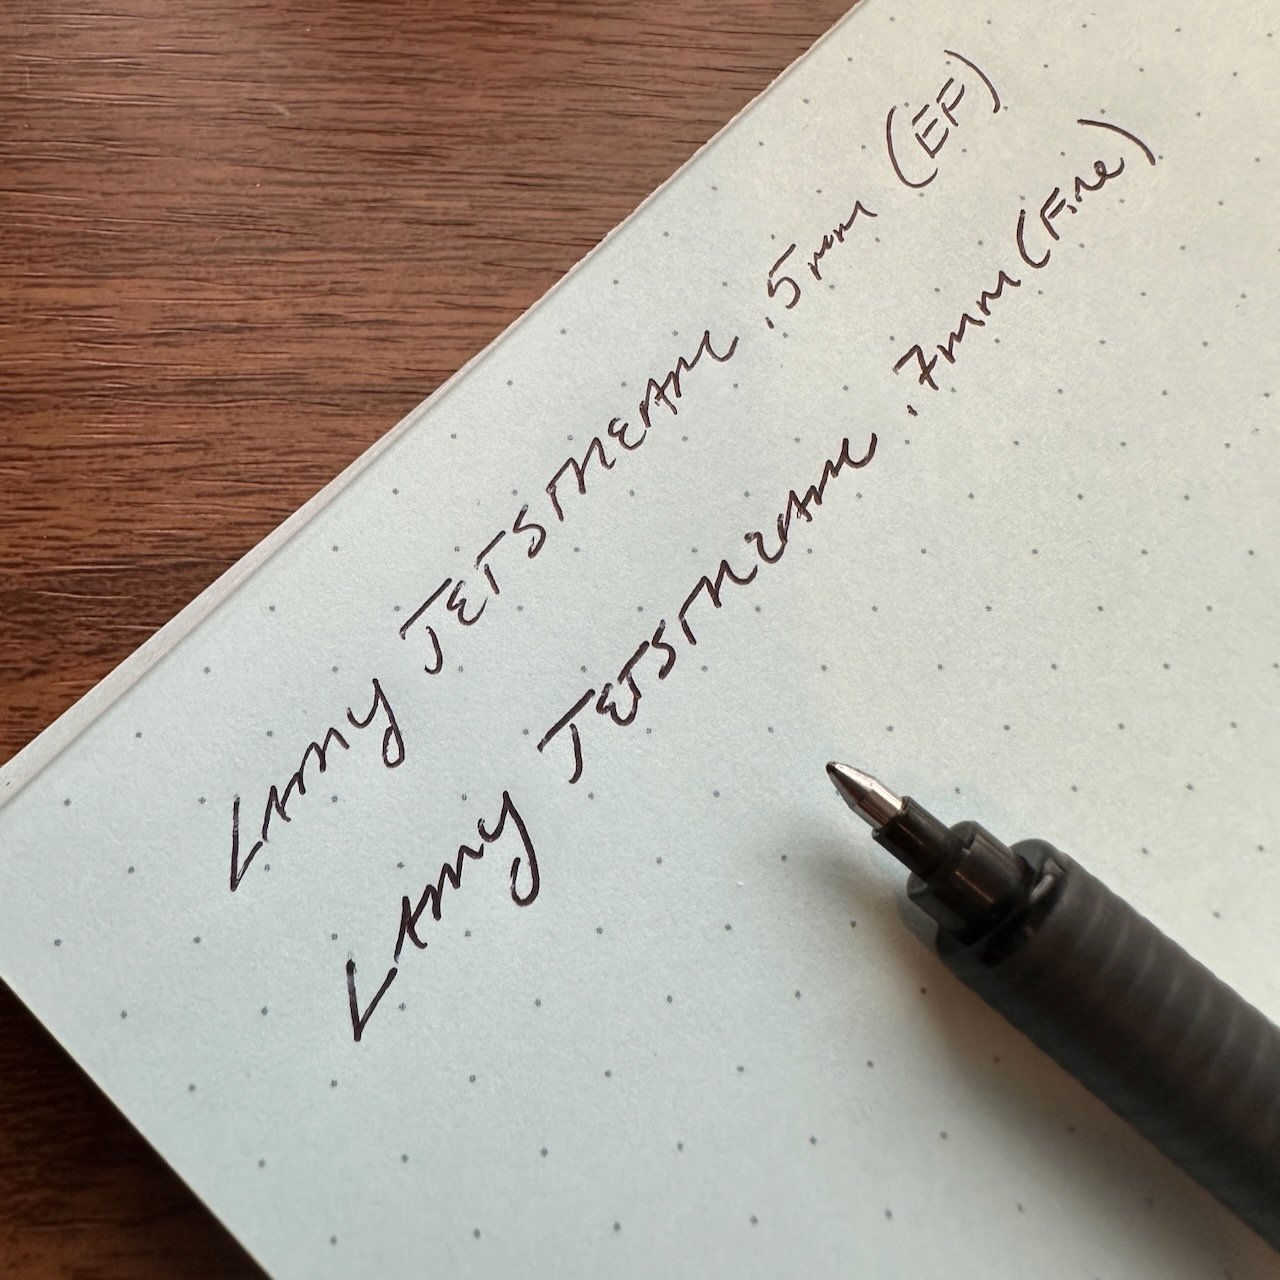 LAMY JETSTREAM .5mm (EF)
LAMY JETSTREAM .7mm (Fine)